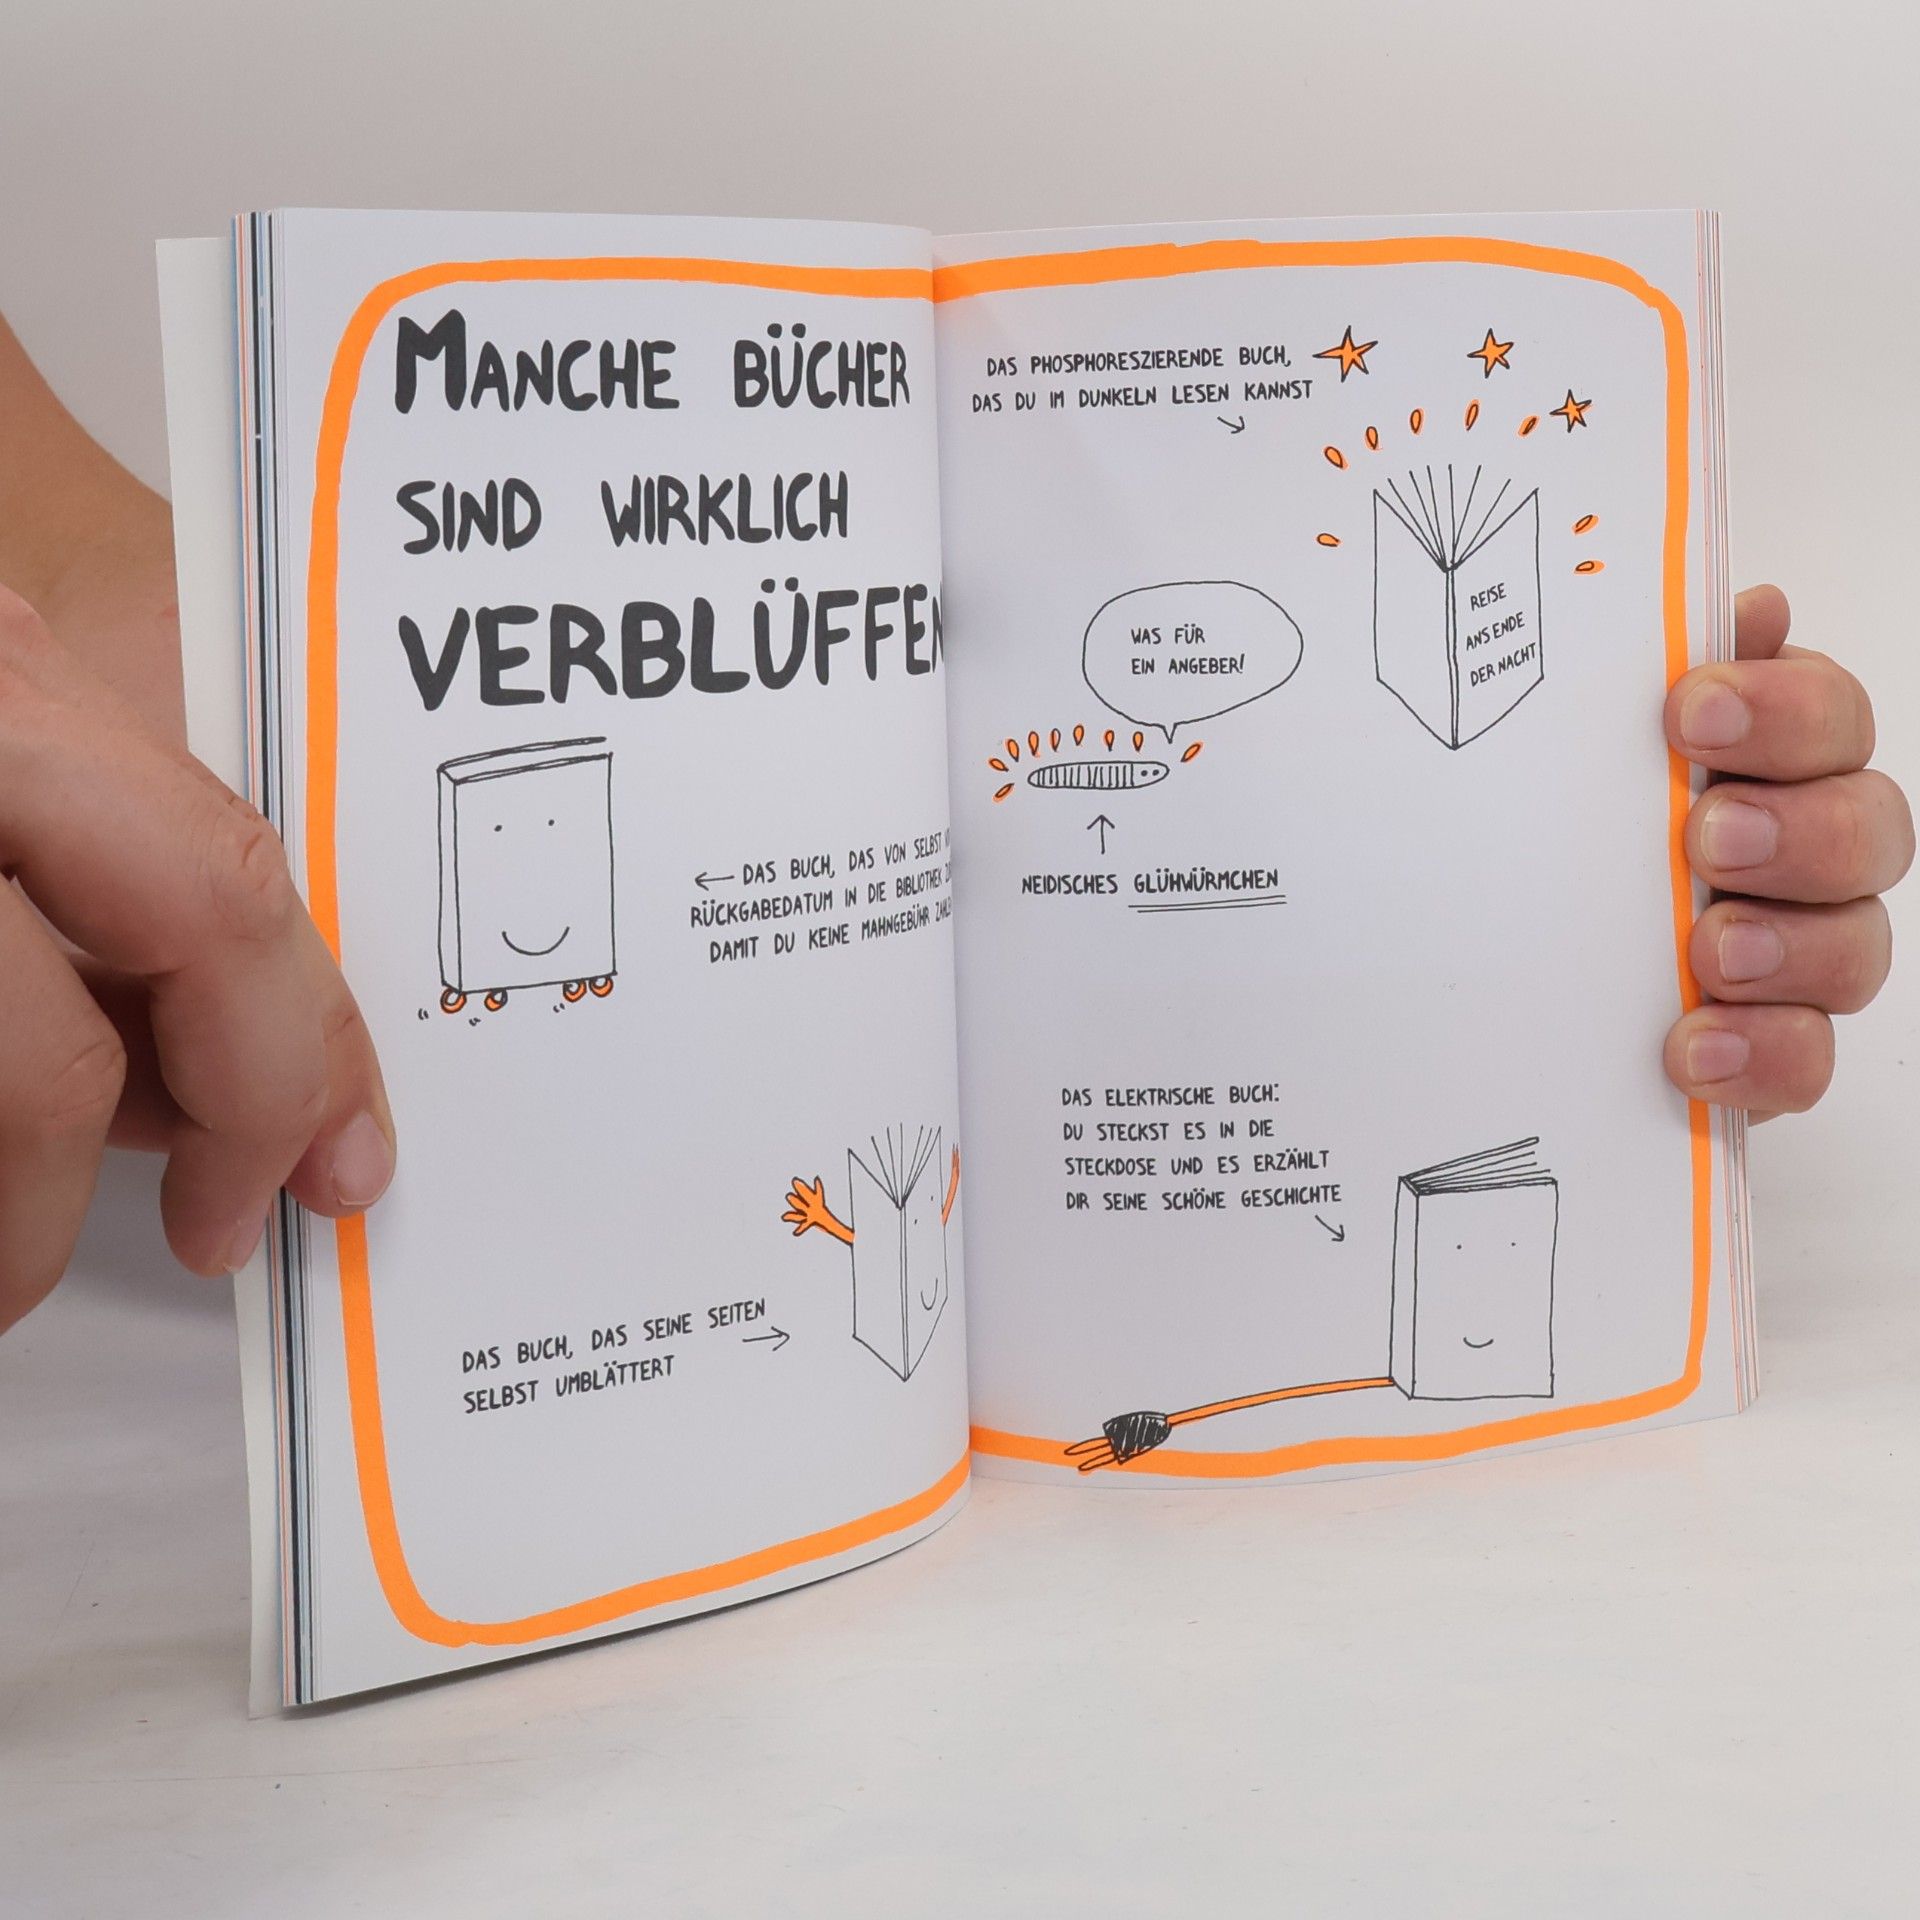 MANCHE BÜCHER
SIND WIRKLICH
VERBLÜFFEN
DAS BUCH, DAS VON SELBST
RÜCKGABEDATUM IN DIE BIBLIOTHEK
DAMIT DU KEINE MAHNGEBÜHR
DAS BUCH, DAS SEINE SEITEN
SELBST UMBLÄTTERT
DAS PHOSPHORESZIERENDE BUCH,
DAS DU IM DUNKELN LESEN KANNST
REISE
ANS ENDE
DER NACHT
WAS FÜR
EIN ANGEBER!
NEIDISCHES GLÜHWÜRMCHEN
DAS ELEKTRISCHE BUCH:
DU STECKST ES IN DIE
STECKDOSE UND ES ERZÄHLT
DIR SEINE SCHÖNE GESCHICHTE